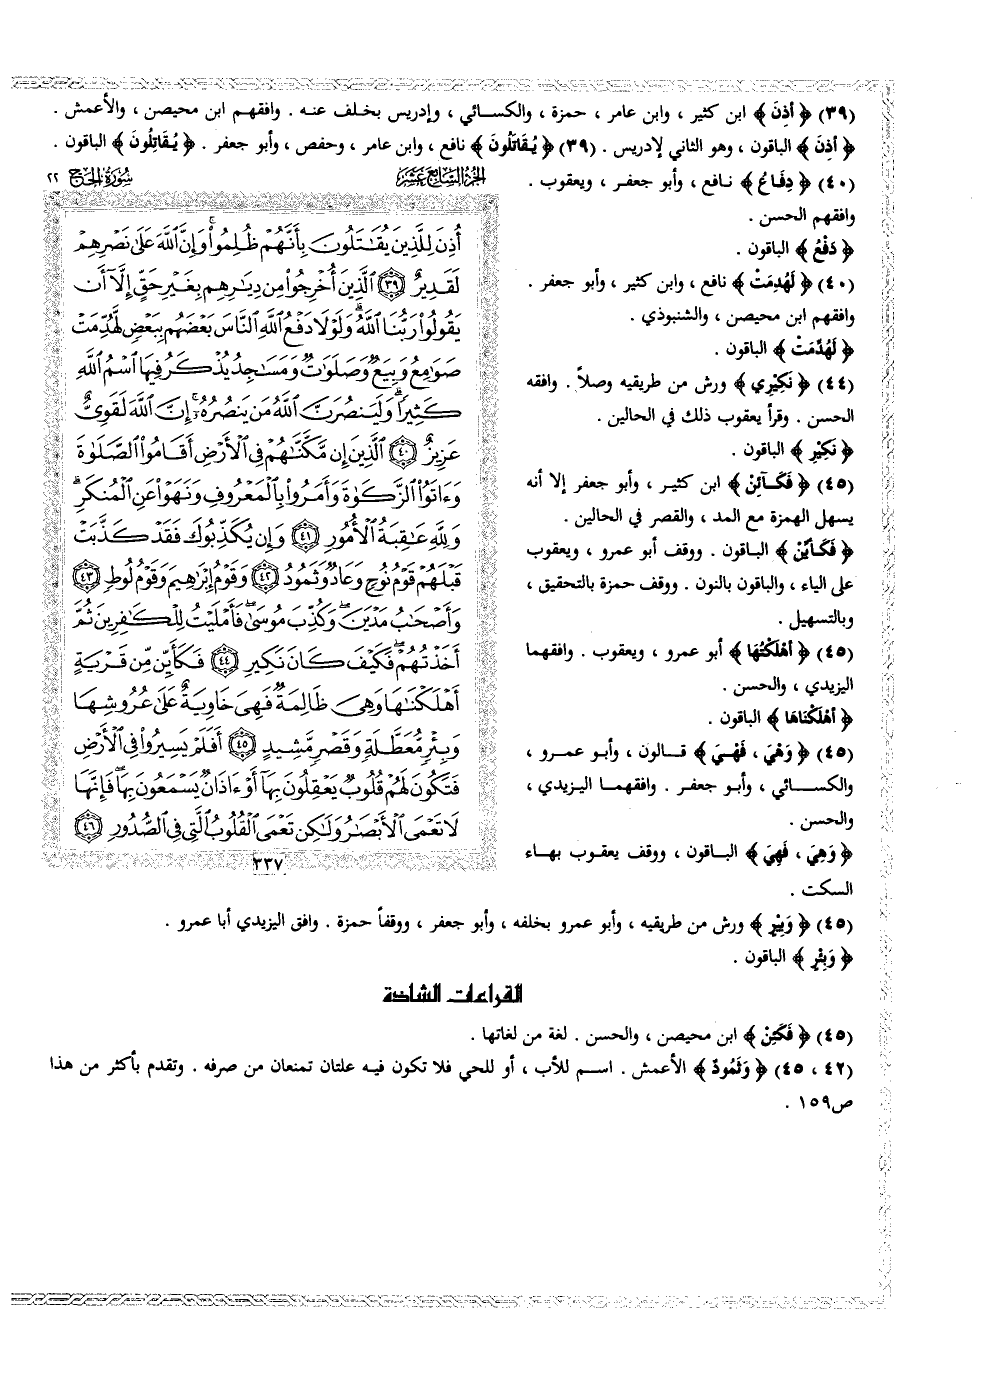 (٣٩) ﴿ أَذِنَ ﴾ ابن كثير ، وابن عامر ، حمزة ، والكسـائي ، وإدريس بخـلف عنـه . وافقهـم ابن محيصن ، والأعمش .
﴿ أُذِنَ ﴾ الباقون ، وهو الثاني لإدريس . (٣٩) ﴿ يُقَاتَلُونَ ﴾ نافع ، وابن عامر ، وحفص ، وأبو جعفر . ﴿ يُقَاتِلُونَ ﴾ الباقون .
(٤٠) ﴿ دِفَاعُ ﴾ نـافع ، وأبو جعفـر ، ويعقوب .
وافقهم الحسن .
﴿ دَفْعُ ﴾ الباقون .
(٤٠) ﴿ لَهُدِمَتْ ﴾ نافع ، وابن كثير ، وأبو جعفر .
وافقهم ابن محيصن ، والشنبوذي .
﴿ لَهُدِّمَتْ ﴾ الباقون .
(٤٤) ﴿ نَكِيْرِي ﴾ ورش من طريقيه وصلاً . وافقه
الحسن . وقرأ يعقوب ذلك في الحالين .
﴿ نَكِيْرِ ﴾ الباقون .
(٤٥) ﴿ فَكَـآئِنْ ﴾ ابن كثيـر ، وأبو جعفر إلا أنه
يسهل الهمزة مع المد ، والقصر في الحالين .
﴿ فَكَـأَيِّنْ ﴾ البـاقون . ووقف أبو عمرو ، ويعقوب
على الياء ، والباقون بالنون . ووقف حمزة بالتحقيق ،
وبالتسهيل .
(٤٥) ﴿ أَهْلَكْتُهَا ﴾ أبو عمرو ، ويعقوب . وافقهما
اليزيدي ، والحسن .
﴿ أَهْلَكْنَاهَا ﴾ الباقون .
(٤٥) ﴿ وَهْيَ ، فَهْـيَ ﴾ قـالون ، وأبـو عمـرو ،
والكســائي ، وأبـو جعفـر . وافقهمـا اليـزيدي ،
والحسن .
﴿ وَهِيَ ، فَهِيَ ﴾ البـاقون ، ووقف يعقـوب بهـاء
السكت .
الجزء السابع عشر
سورة الحج ٢٢
أُذِنَ لِلَّذِينَ يُقَٰتَلُونَ بِأَنَّهُمْ ظُلِمُوا۟ ۚ وَإِنَّ ٱللَّهَ عَلَىٰ نَصْرِهِمْ
لَقَدِيرٌ ٣٩ ٱلَّذِينَ أُخْرِجُوا۟ مِن دِيَٰرِهِم بِغَيْرِ حَقٍّ إِلَّآ أَن
يَقُولُوا۟ رَبُّنَا ٱللَّهُ ۗ وَلَوْلَا دَفْعُ ٱللَّهِ ٱلنَّاسَ بَعْضَهُم بِبَعْضٍ لَّهُدِّمَتْ
صَوَٰمِعُ وَبِيَعٌ وَصَلَوَٰتٌ وَمَسَٰجِدُ يُذْكَرُ فِيهَا ٱسْمُ ٱللَّهِ
كَثِيرًا ۗ وَلَيَنصُرَنَّ ٱللَّهُ مَن يَنصُرُهُۥٓ ۗ إِنَّ ٱللَّهَ لَقَوِىٌّ
عَزِيزٌ ٤٠ ٱلَّذِينَ إِن مَّكَّنَّٰهُمْ فِى ٱلْأَرْضِ أَقَامُوا۟ ٱلصَّلَوٰةَ
وَءَاتَوُا۟ ٱلزَّكَوٰةَ وَأَمَرُوا۟ بِٱلْمَعْرُوفِ وَنَهَوْا۟ عَنِ ٱلْمُنكَرِ ۗ
وَلِلَّهِ عَٰقِبَةُ ٱلْأُمُورِ ٤١ وَإِن يُكَذِّبُوكَ فَقَدْ كَذَّبَتْ
قَبْلَهُمْ قَوْمُ نُوحٍ وَعَادٌ وَثَمُودُ ٤٢ وَقَوْمُ إِبْرَٰهِيمَ وَقَوْمُ لُوطٍ ٤٣
وَأَصْحَٰبُ مَدْيَنَ ۖ وَكُذِّبَ مُوسَىٰ فَأَمْلَيْتُ لِلْكَٰفِرِينَ ثُمَّ
أَخَذْتُهُمْ ۖ فَكَيْفَ كَانَ نَكِيرِ ٤٤ فَكَأَيِّن مِّن قَرْيَةٍ
أَهْلَكْنَٰهَا وَهِىَ ظَالِمَةٌ فَهِىَ خَاوِيَةٌ عَلَىٰ عُرُوشِهَا
وَبِئْرٍ مُّعَطَّلَةٍ وَقَصْرٍ مَّشِيدٍ ٤٥ أَفَلَمْ يَسِيرُوا۟ فِى ٱلْأَرْضِ
فَتَكُونَ لَهُمْ قُلُوبٌ يَعْقِلُونَ بِهَآ أَوْ ءَاذَانٌ يَسْمَعُونَ بِهَا ۖ فَإِنَّهَا
لَا تَعْمَى ٱلْأَبْصَٰرُ وَلَٰكِن تَعْمَى ٱلْقُلُوبُ ٱلَّتِى فِى ٱلصُّدُورِ ٤٦
٣٣٧
(٤٥) ﴿ وَبِيْرٍ ﴾ ورش من طريقيه ، وأبو عمرو بخلفه ، وأبو جعفر ، ووقفاً حمزة . وافق اليزيدي أبا عمرو .
﴿ وَبِئْرٍ ﴾ الباقون .
القراءات الشاذة
(٤٥) ﴿ فَكَئِنْ ﴾ ابن محيصن ، والحسن . لغة من لغاتها .
(٤٢ ، ٤٥) ﴿ وَثَمُودٌ ﴾ الأعمش . اسـم للأب ، أو للحي فلا تكون فيه علتان تمنعان من صرفه . وتقدم بأكثر من هذا
ص١٥٩ .